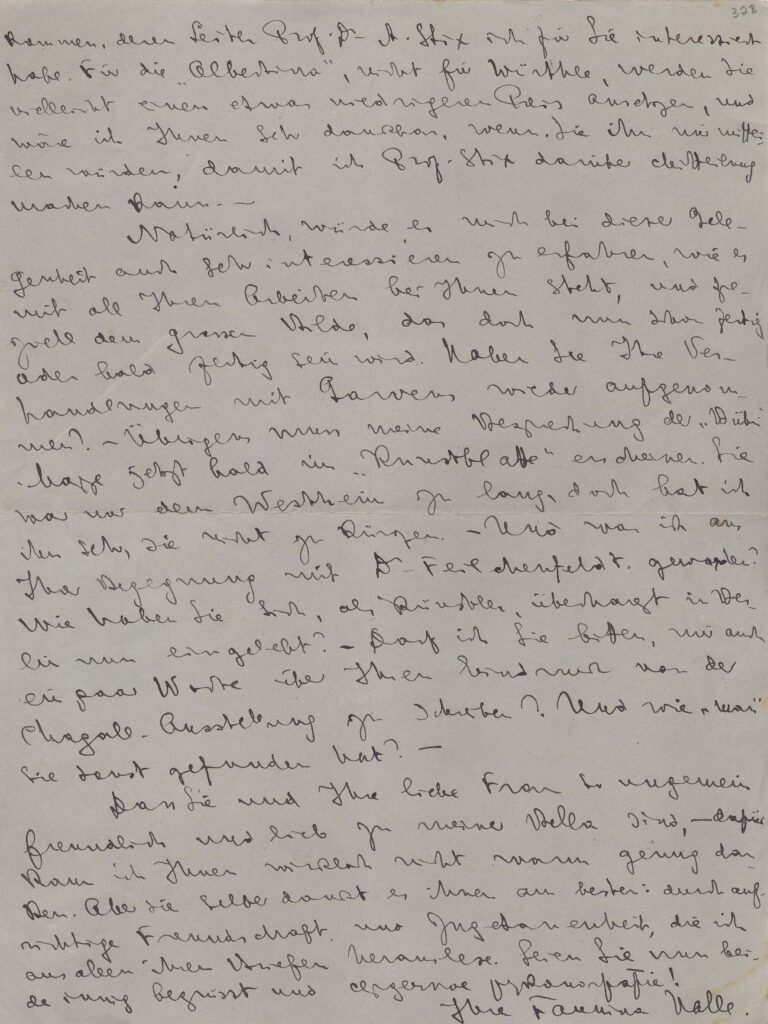 328
kommen, deren Leiter Prof. Dr A. Stix ich für Sie interessiert
habe. Für die „Albertina", nicht für Würthle, werden Sie
vielleicht einen etwas niedrigeren Preis ansetzen, und
wäre ich Ihnen sehr dankbar, wenn Sie ihn mir mittei-
len würden, damit ich Prof. Stix darüber Mitteilung
machen kann. —
Natürlich, würde es mich bei dieser Gele-
genheit auch sehr interessieren zu erfahren, wie es
mit all Ihren Arbeiten bei Ihnen steht, und spe-
ziell dem grossen Bilde, das doch nun schon fertig
oder bald fertig sein wird. Haben Sie Ihre Ver-
handlungen mit Garvens wieder aufgenom-
men? – Übrigens muss meine Besprechung der
Mappe jetzt bald im „Kunstblatt" erscheinen. Sie
war nur dem Westheim zu lang, doch bat ich
ihn sehr, sie nicht zu kürzen. – Und was ist aus
Ihrer Begegnung mit Dr Feilchenfeldt geworden?
Wie haben Sie sich, als Künstler, überhaupt in Ber-
lin nun eingelebt? – Darf ich Sie bitten, mir auch
ein paar Worte über Ihren Eindruck von der
Chagall-Ausstellung zu schreiben? Und wie „man"
Sie sonst gefunden hat? —
Dass Sie und Ihre liebe Frau so ungemein
freundlich und lieb zu meiner Bella sind, – dafür
kann ich Ihnen wirklich nicht warm genug dan-
ken. Aber sie selber dankt es Ihnen am besten: durch auf-
richtige Freundschaft und Zugetanenheit, die ich
aus allen ihren Briefen herauslese. Seien Sie nun bei-
de innig begrüsst und
Ihre Fannina Halle.